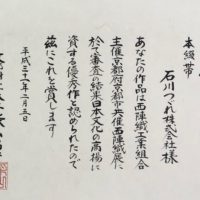 本綴帯
石川つづれ株式会社様
あなたの作品は西陣織工業組合
主催京都府京都市共催西陣織展に
於て審査の結果日本文化の高揚に
資する優秀作と認められたので
茲にこれを賞します
平成三十一年二月五日